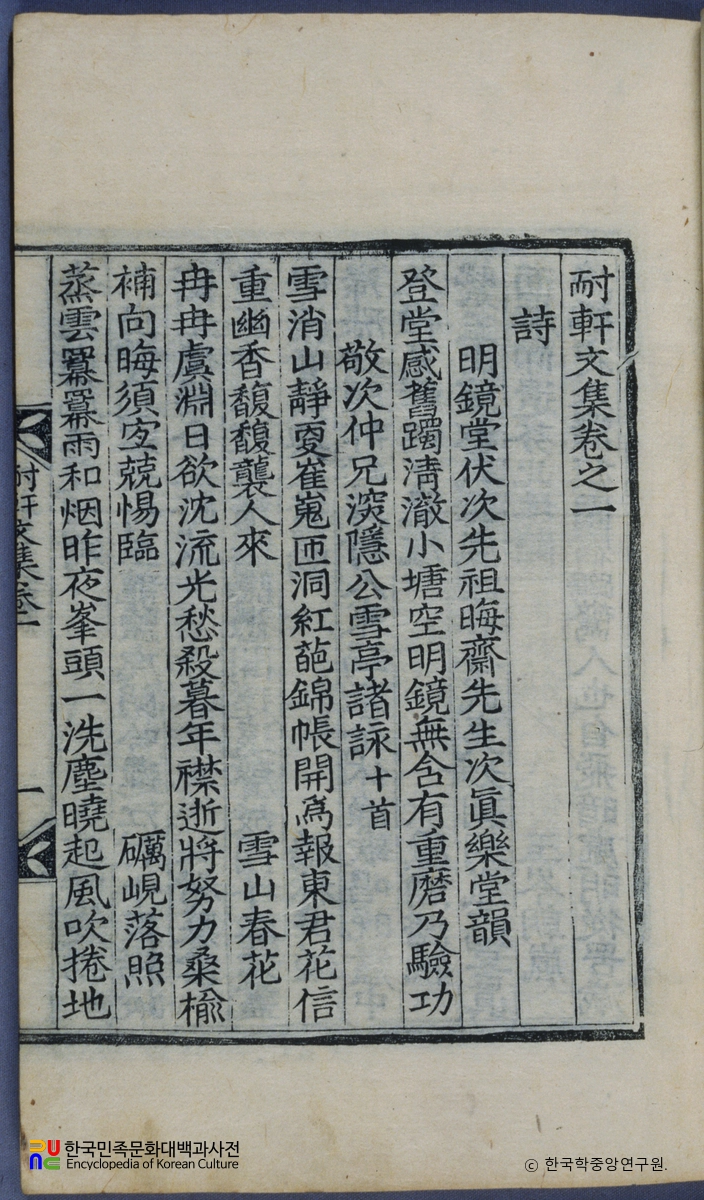 耐軒文集卷之一
詩
明鏡堂伏次先祖晦齋先生次眞樂堂韻
登堂感舊躅淸澈小塘空明鏡無含有重磨乃驗功
敬次仲兄深隱公雪亭諸詠十首
雪消山靜夏崔嵬匝洞紅葩錦帳開爲報東君花信
重幽香馥馥襲人來 雪山春花
冉冉虞淵日欲沈流光愁殺暮年襟逝將努力桑楡
補向晦須宜兢惕臨 礪峴落照
蒸雲羃羃雨和烟昨夜峯頭一洗塵曉起風吹捲地
耐軒文集卷一
一
한국민족문화대백과사전
Encyclopedia of Korean Culture
© 한국학중앙연구원.